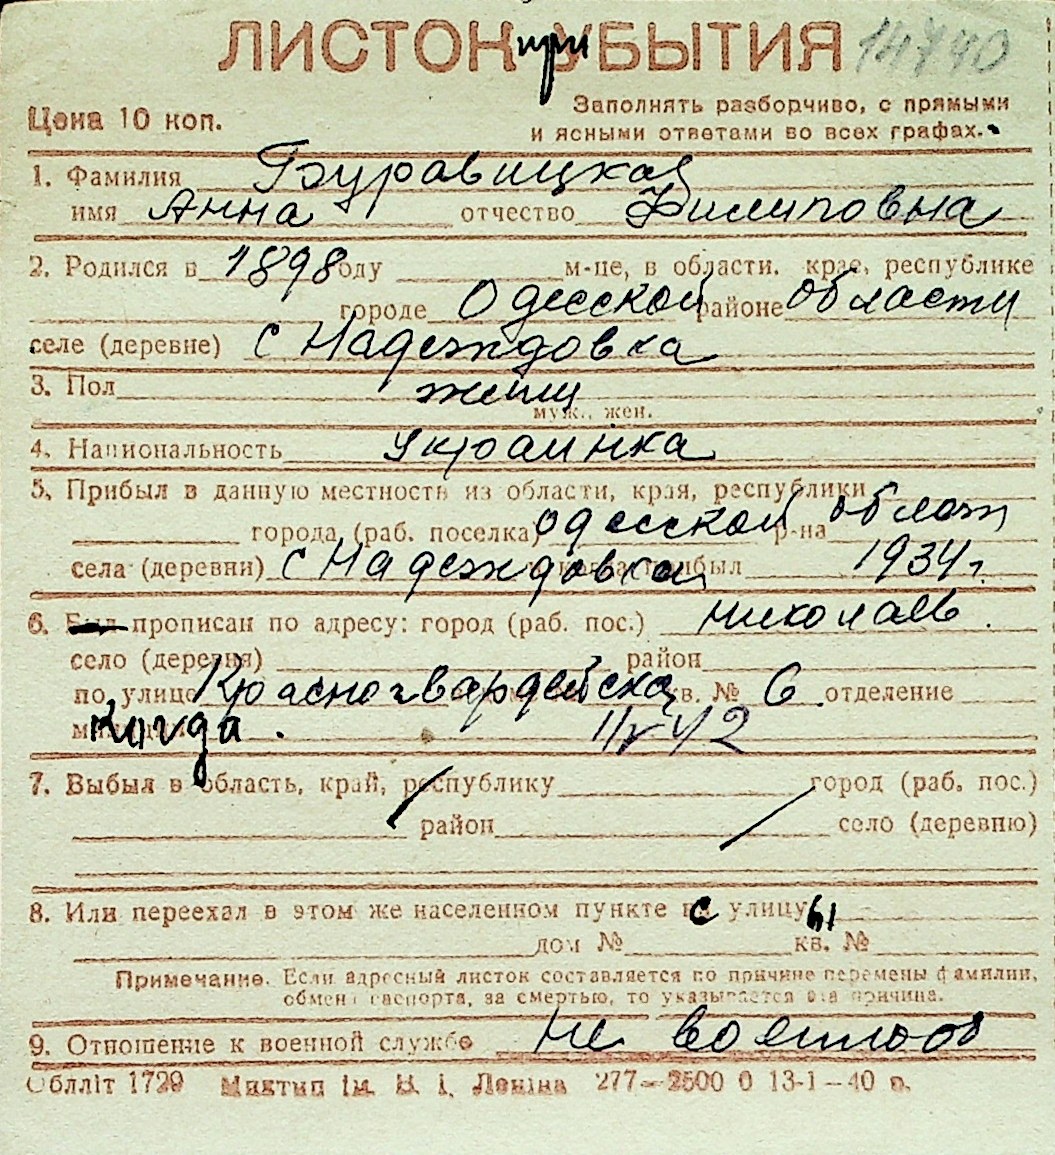 ЛИСТОК при УБЫТИЯ 14740
Цена 10 коп.
Заполнять разборчиво, с прямыми
и ясными ответами во всех графах.
1. Фамилия Журавицкая
имя Анна отчество Филиповна
2. Родился в 1898 году м-це, в области, крае, республике
городе Одесской районе области
селе (деревне) с Надеждовка
3. Пол женщ
муж., жен.
4. Национальность украинка
5. Прибыл в данную местность из области, края, республики
города (раб. поселка) одесской р-на област
села (деревни) с Надеждовка прибыл 1934 г.
6. Был прописан по адресу: город (раб. пос.) Николаев.
село (деревня) район
по улице Красногвардейска кв. № 6 отделение
Когда. 42
7. Выбыл в область, край, республику город (раб. пос.)
район село (деревню)
8. Или переехал в этом же населенном пункте с улицы
дом № кв. №
Примечание. Если адресный листок составляется по причине перемены фамилии,
обмена паспорта, за смертью, то указывается эта причина.
9. Отношение к военной службе не военнооб
Обллiт 1729 Миктип iм. В. I. Ленiна 277—2500 0 13-1—40 р.